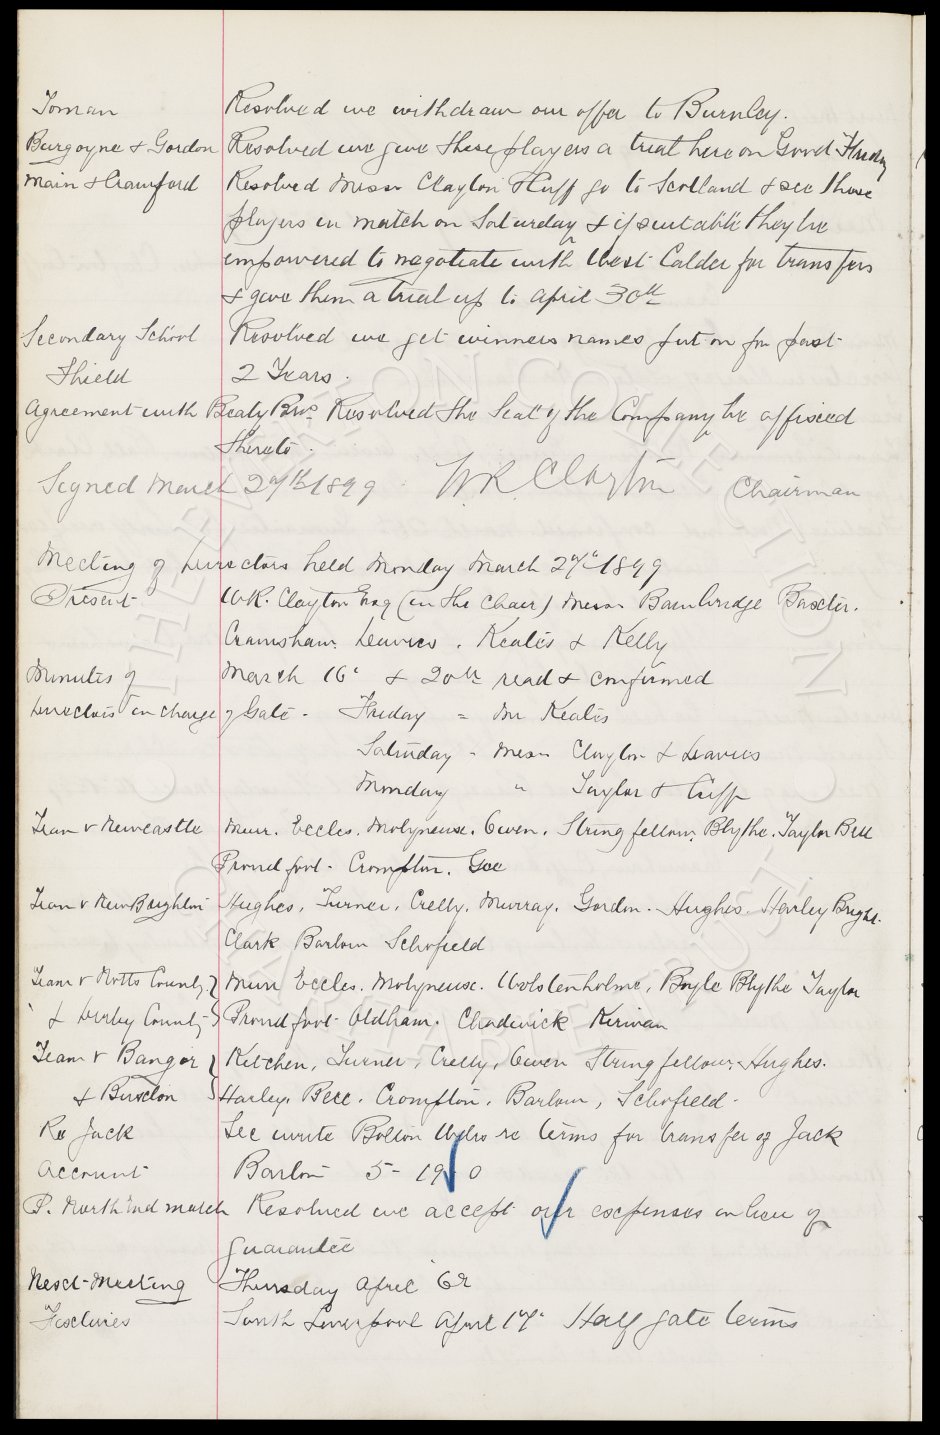 Toman Resolved we withdraw our offer to Burnley.
Burgoyne & Gordon Resolved we give these players a trial here on Good Friday
Main & Crawford Resolved Messrs Clayton & Cuff go to Scotland & see these
players in match on Saturday & if suitable they be
empowered to negotiate with West Calder for transfers
& give them a trial up to April 30th
Secondary School Resolved we get winners names put on for past
Shield 2 Years.
Agreement with Beaty Bros. Resolved the Seal of the Company be affixed
thereto.
Signed March 27th 1899 W.R. Clayton Chairman
Meeting of Directors held Monday March 27th 1899
Present W.R. Clayton Esq (in the chair) Messrs Bainbridge Baxter.
Cranshaw. Davies. Keates & Kelly
Minutes of March 16th & 20th read & confirmed
Directors in charge of Gate - Friday = Mr Keates
Saturday - Messrs Clayton & Davies
Monday " Taylor & Cuff
Team v Newcastle Muir. Eccles. Molyneux. Owen. Stringfellow. Blythe. Taylor Bell
Proudfoot - Crompton. Gee
Team v New Brighton Hughes, Turner, Crelly, Murray, Gordon. Hughes. Harley Bright.
Clark Barlow Schofield
Team v Notts County Muir Eccles. Molyneux. Wolstenholme, Boyle Blythe Taylor
& Derby County Proudfoot Oldham. Chadwick Kirwan
Team v Bangor Kitchen, Turner, Crelly, Owen Stringfellow, Hughes.
& Buxton Harley, Bell. Crompton, Barlow, Schofield -
Re Jack Sec write Bolton Wdrs re terms for transfer of Jack
Account Barton 5 - 19 - 0
P. North End match Resolved we accept our expenses in lieu of
guarantee
Next Meeting Thursday April 6th
Fixtures South Liverpool April 17th Half gate terms
THE EVERTON COLLECTION
CHARITABLE TRUST